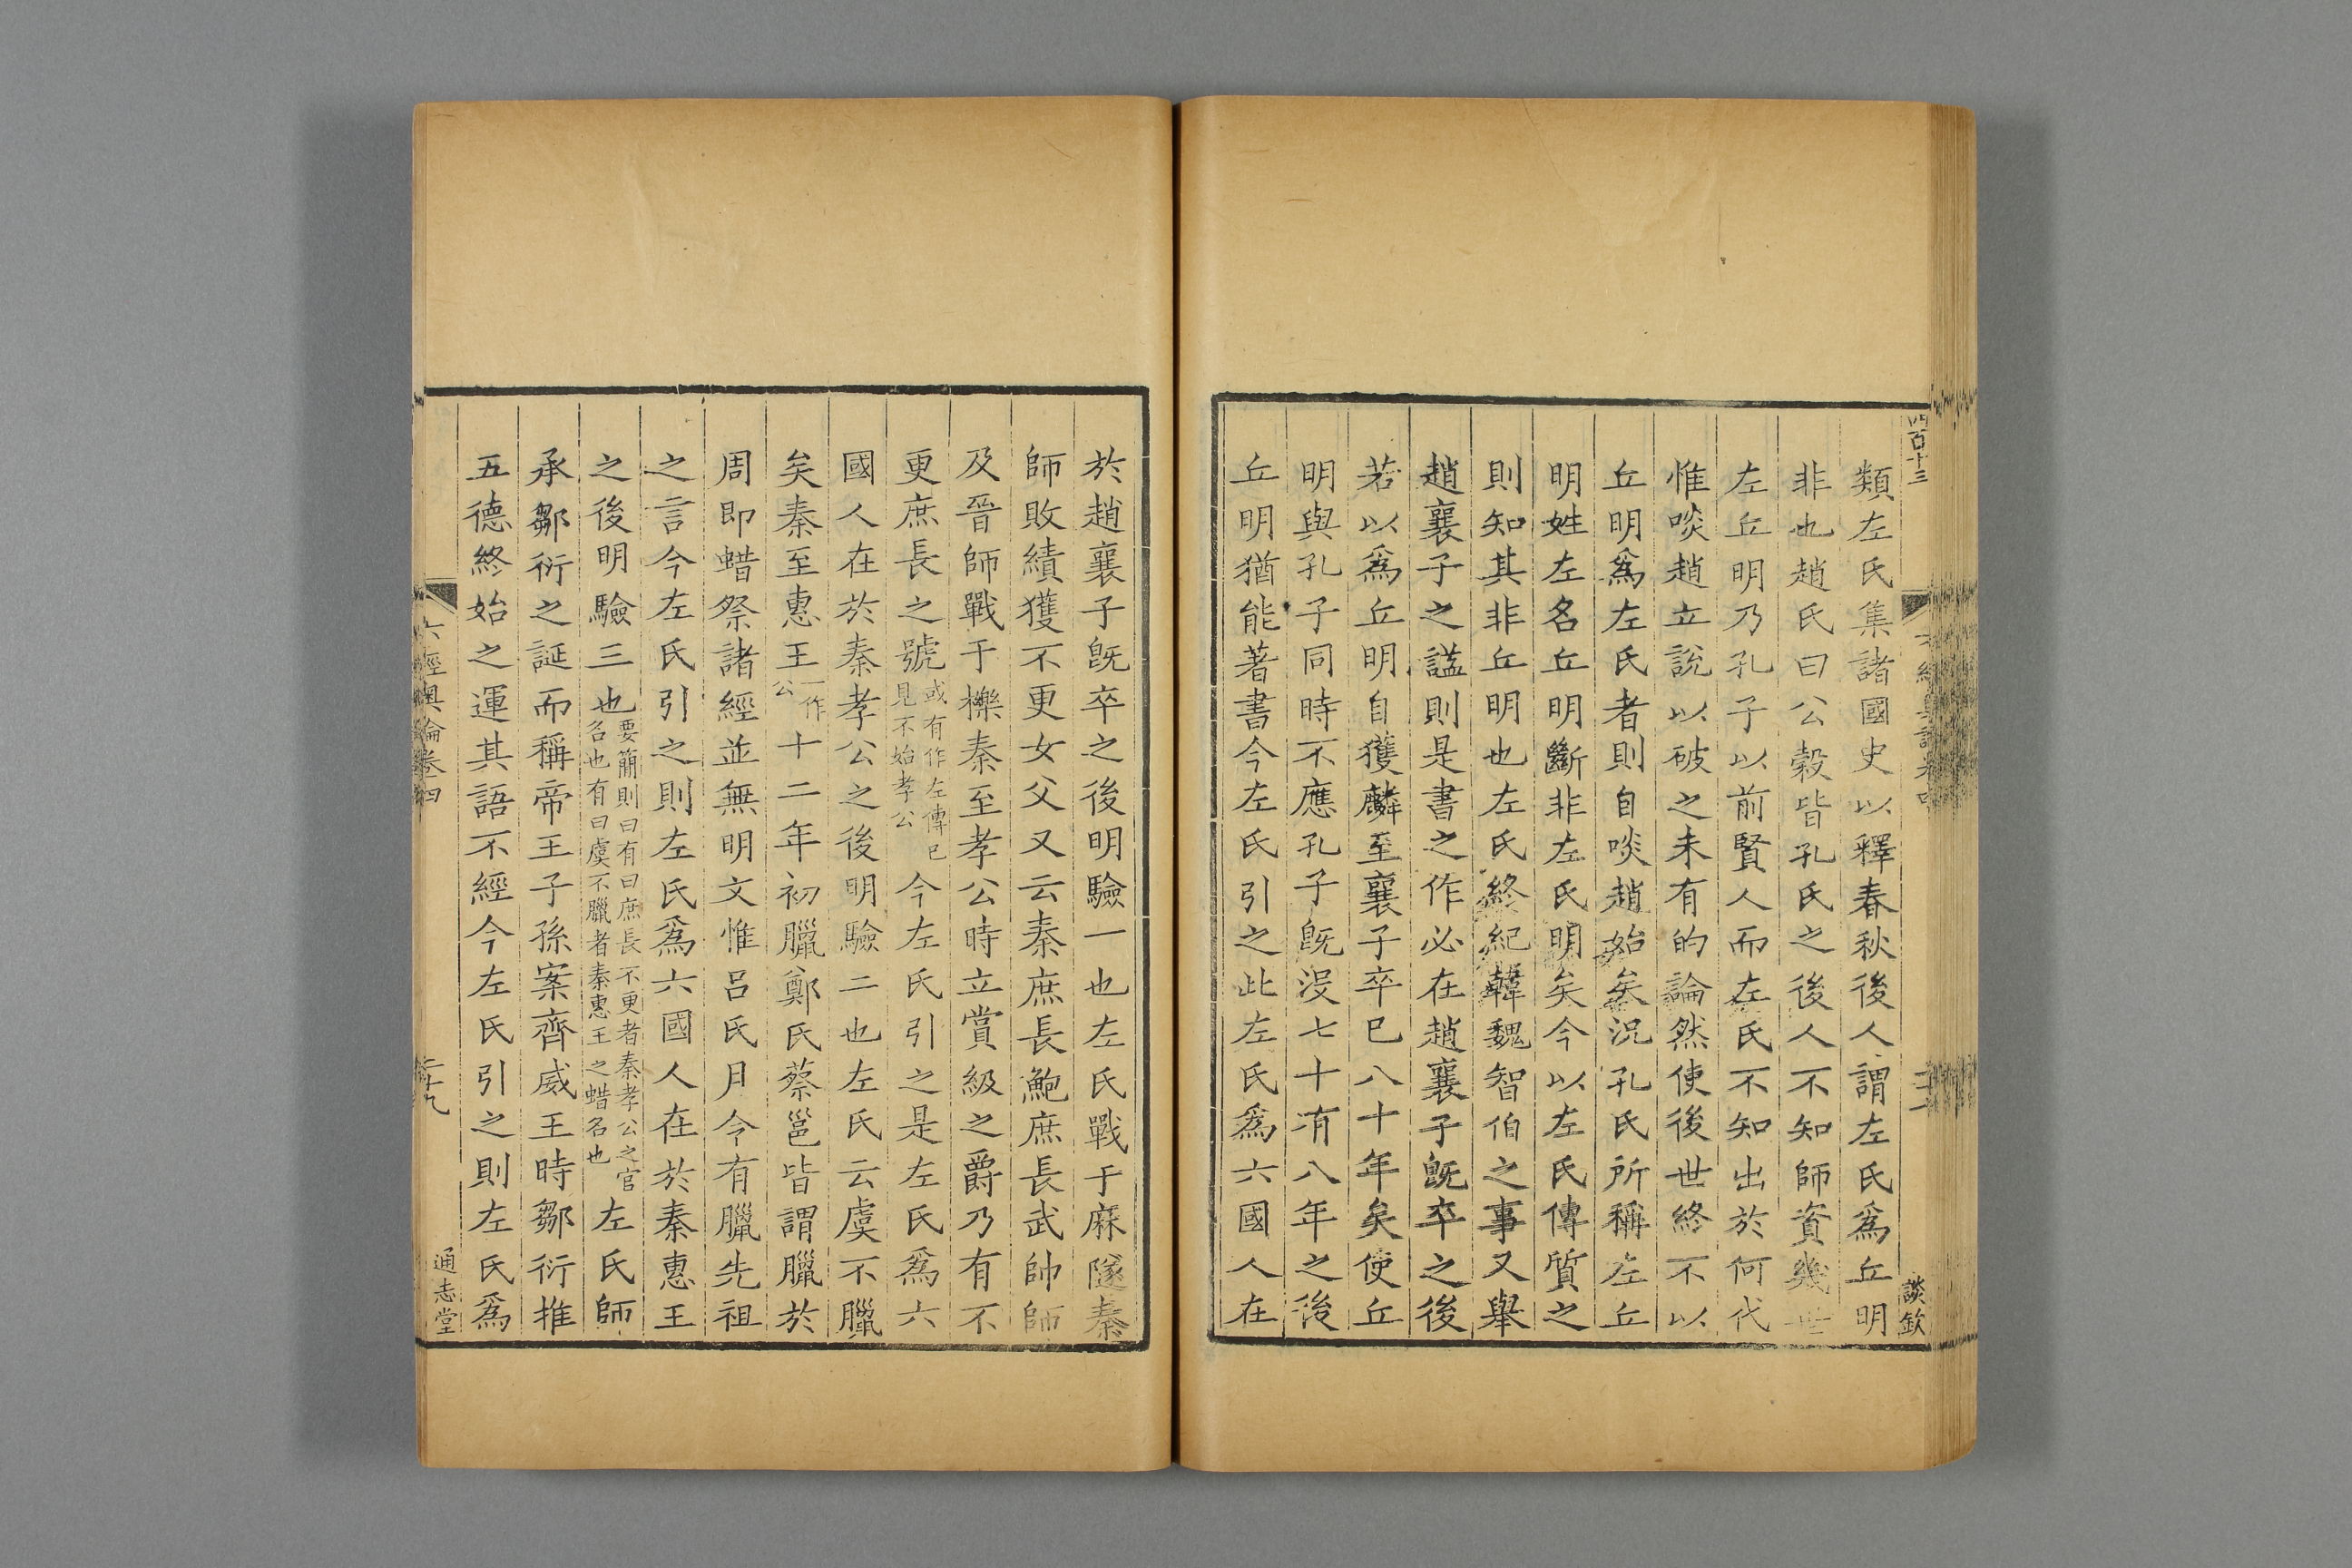 四百十三
談欽
類左氏集諸國史以釋春秋後人謂左氏爲丘明
非也趙氏曰公穀皆孔氏之後人不知師資幾世
左丘明乃孔子以前賢人而左氏不知出於何代
惟啖趙立說以破之未有的論然使後世終不以
丘明爲左氏者則自啖趙始矣況孔氏所稱左丘
明姓左名丘明斷非左氏明矣今以左氏傳質之
則知其非丘明也左氏終紀韓魏智伯之事又舉
趙襄子之諡則是書之作必在趙襄子旣卒之後
若以爲丘明自獲麟至襄子卒已八十年矣使丘
明與孔子同時不應孔子旣沒七十有八年之後
丘明猶能著書今左氏引之此左氏爲六國人在
於趙襄子旣卒之後明驗一也左氏戰于麻隧秦
師敗績獲不更女父又云秦庶長鮑庶長武帥師
及晉師戰于櫟秦至孝公時立賞級之爵乃有不
更庶長之號或有作左傳已見不始孝公今左氏引之是左氏爲六
國人在於秦孝公之後明驗二也左氏云虞不臘
矣秦至惠王一作公十二年初臘鄭氏蔡邕皆謂臘於
周即蜡祭諸經並無明文惟呂氏月令有臘先祖
之言今左氏引之則左氏爲六國人在於秦惠王
之後明驗三也要簡則曰有曰庶長不更者秦孝公之官名也有曰虞不臘者秦惠王之蜡名也左氏師
承鄒衍之誕而稱帝王子孫案齊威王時鄒衍推
五德終始之運其語不經今左氏引之則左氏爲
六經奥論卷四
通志堂